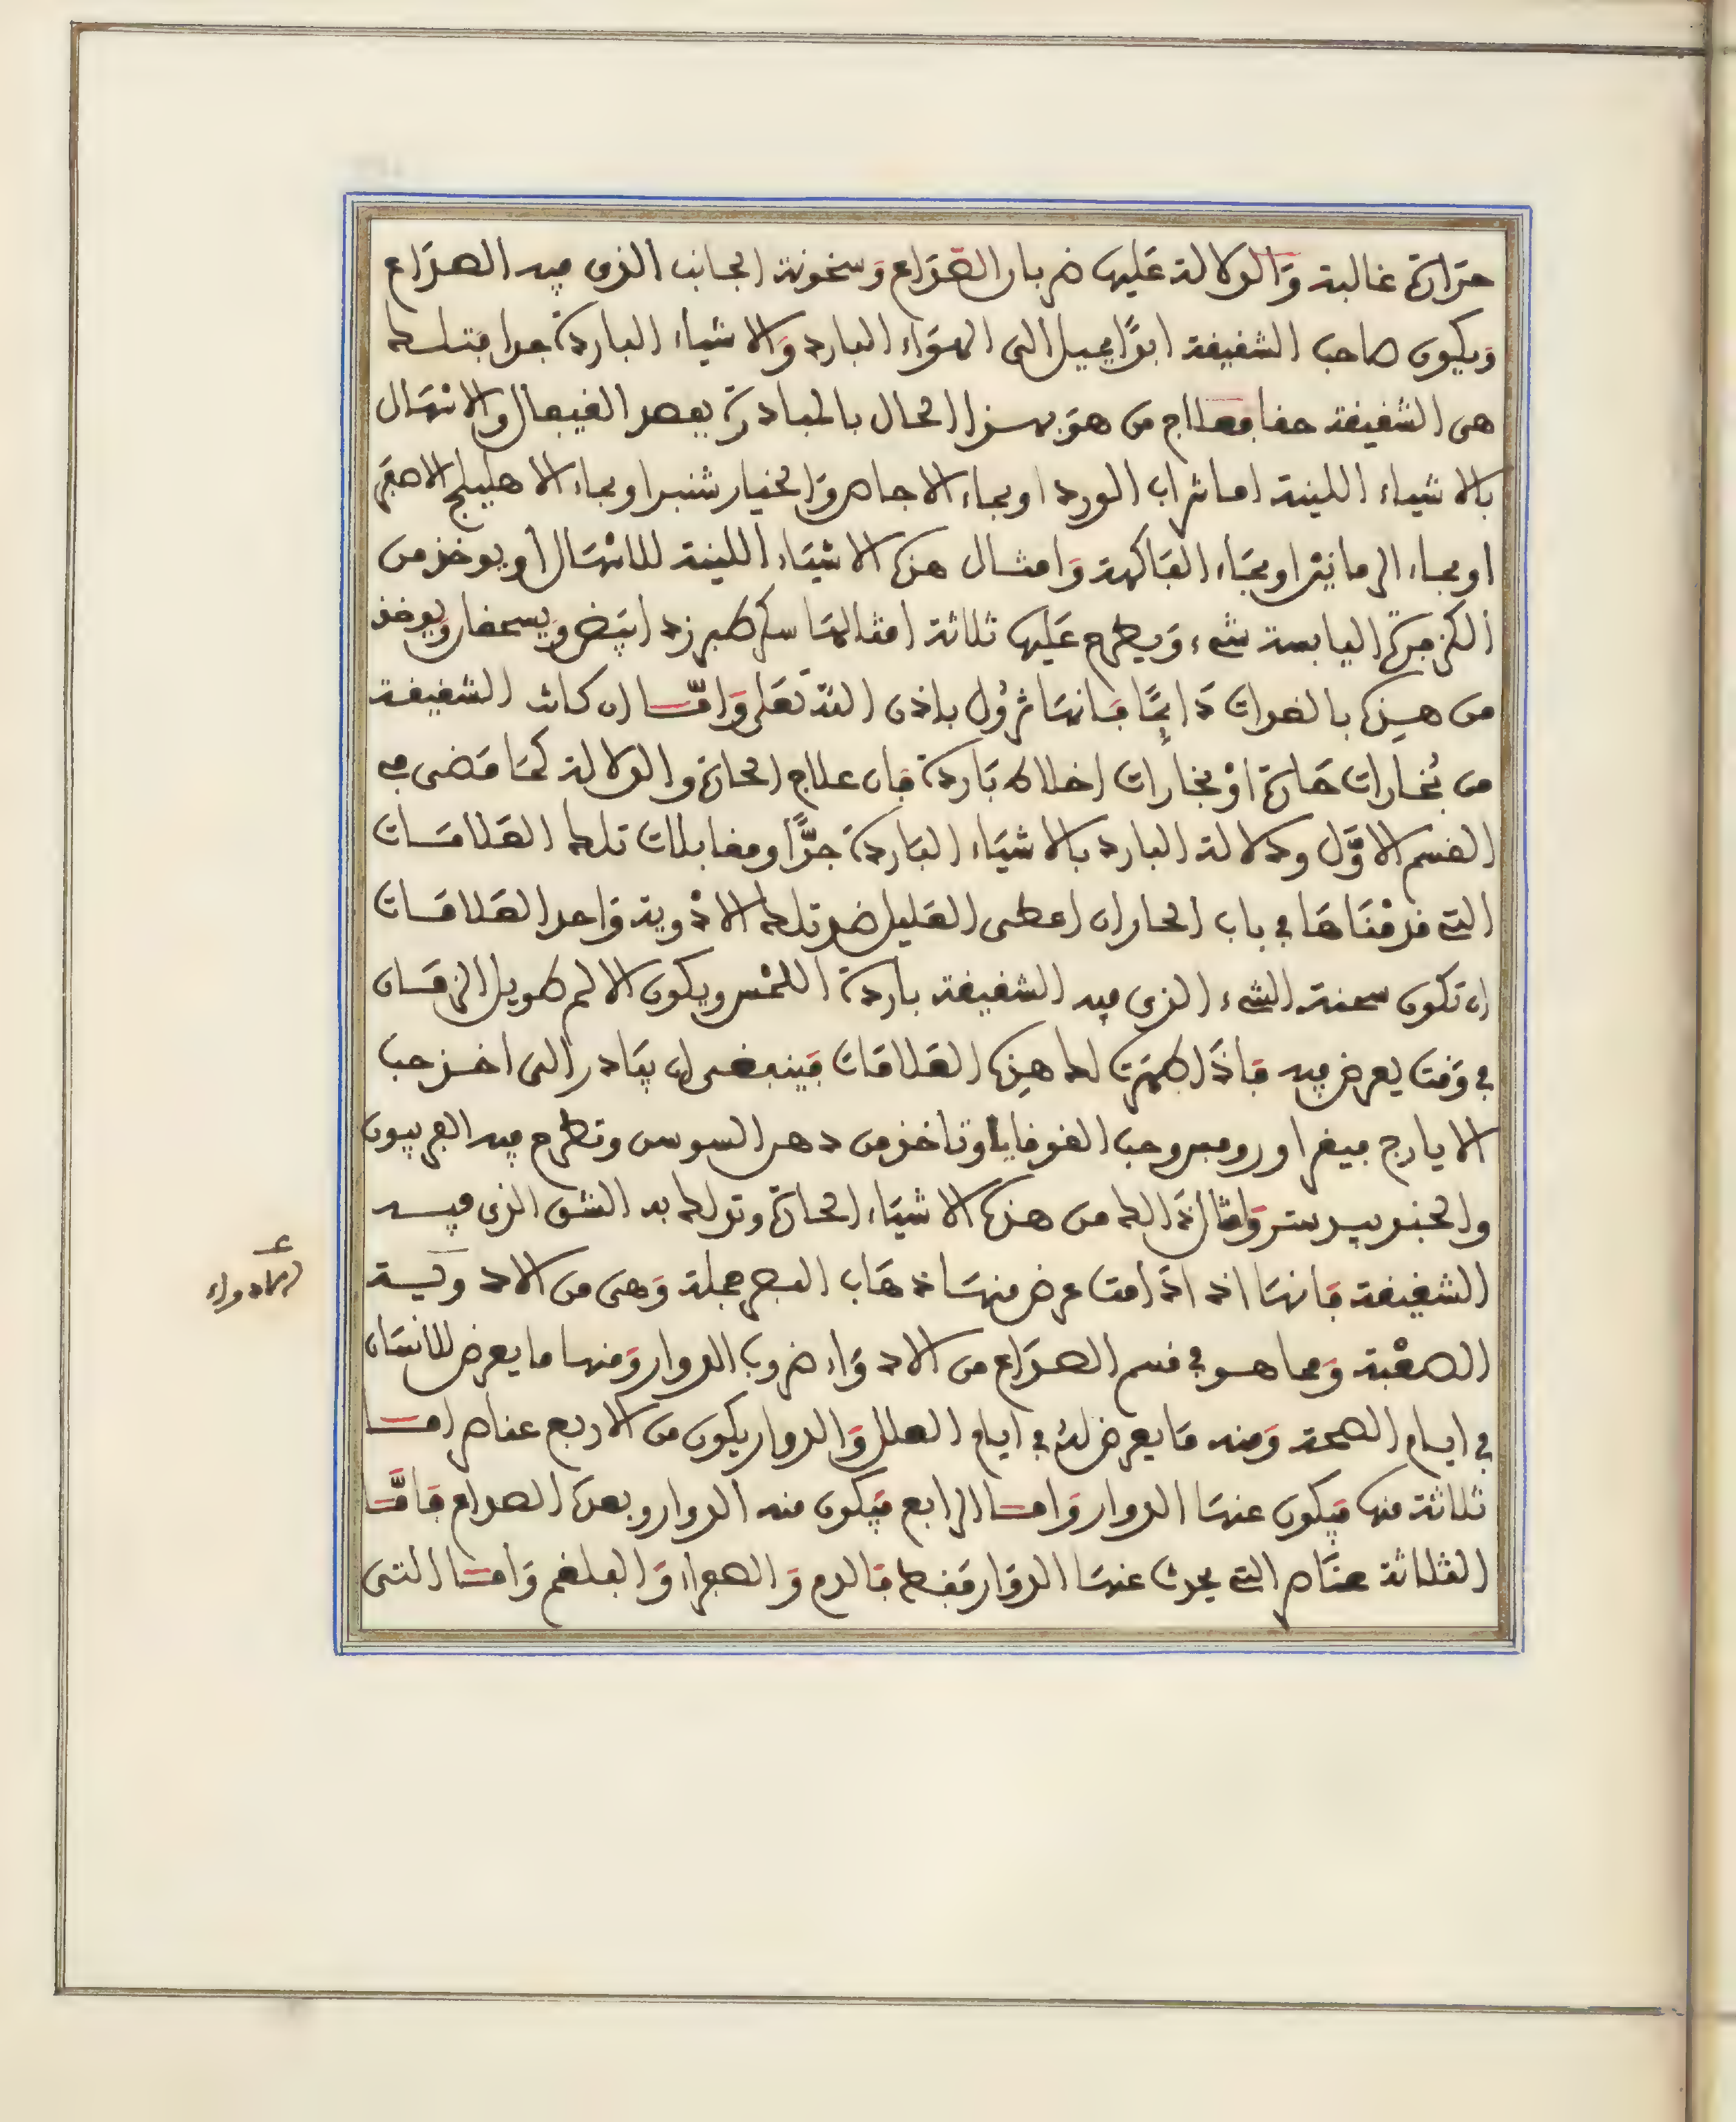 حرارة غالبة والدلالة عليها ضربان الصداع وسخونة الجانب الذي فيه الصداع
ويكون صاحب الشقيقة ابدا يميل الى الهواء البارد والاشياء الباردة جدا فتلك
هي الشقيقة حقا فعلاج من هو بهذا الحال بالمبادرة بفصد القيفال والاسهال
بالاشياء اللينة اما شراب الورد او بماء الاجاص والخيار شنبر او بماء الاهليلج الاصفر
او بماء الرمانين او بماء الفاكهة وامثال هذه الاشياء اللينة للاسهال او يوخذ من
الكزبرة اليابسة شيء ويطرح عليها ثلاثة امثالها سكر طبرزد ابيض ويسحقان ويوخذ
من هذه بالغدوات دائما فانها تزول باذن الله تعلى واما ان كانت الشقيقة
من بخارات حارة او بخارات اخلاط باردة فان علاج الحارة والدلالة كما مضى في
القسم الاول ودلالة البارد بالاشياء الباردة جدا ومقابلات تلك العلامات
التي قدمناها في باب الحار ان اعطى العليل ضد تلك الادوية واحد العلامات
ان تكون سحنة الشيء الذي فيه الشقيقة باردة اللمس ويكون الالم طويل الزمان
في وقت يعرض فيه فاذا ظهرت لك هذه العلامات فينبغي ان يبادر الى اخذ حب
الايارج فيقرا وروفس وحب القوقايا وتاخذ من دهن السوسن وتطرح فيه الفربيون
والجندبيدستر وامثال ذالك من هذه الاشياء الحارة وتدلك به الشق الذي فيه
الشقيقة فانها اذ اذامت عرض منها ذهاب البصر جملة وهى من الادوية
الصعبة ومما هو في قسم الصداع من الادواء ضروب الدوار ومنها ما يعرض للانسان
في ايام الصحة ومنه ما يعرض له في ايام العلل والدوار يكون من الاربع عناصر اما
ثلاثة منها فيكون عنها الدوار واما الرابع فيكون منه الدوار وبعده الصداع فاما
الثلاثة عناصر التي يحدث عنها الدوار فقط فالدم والصفراء والبلغم واما التي